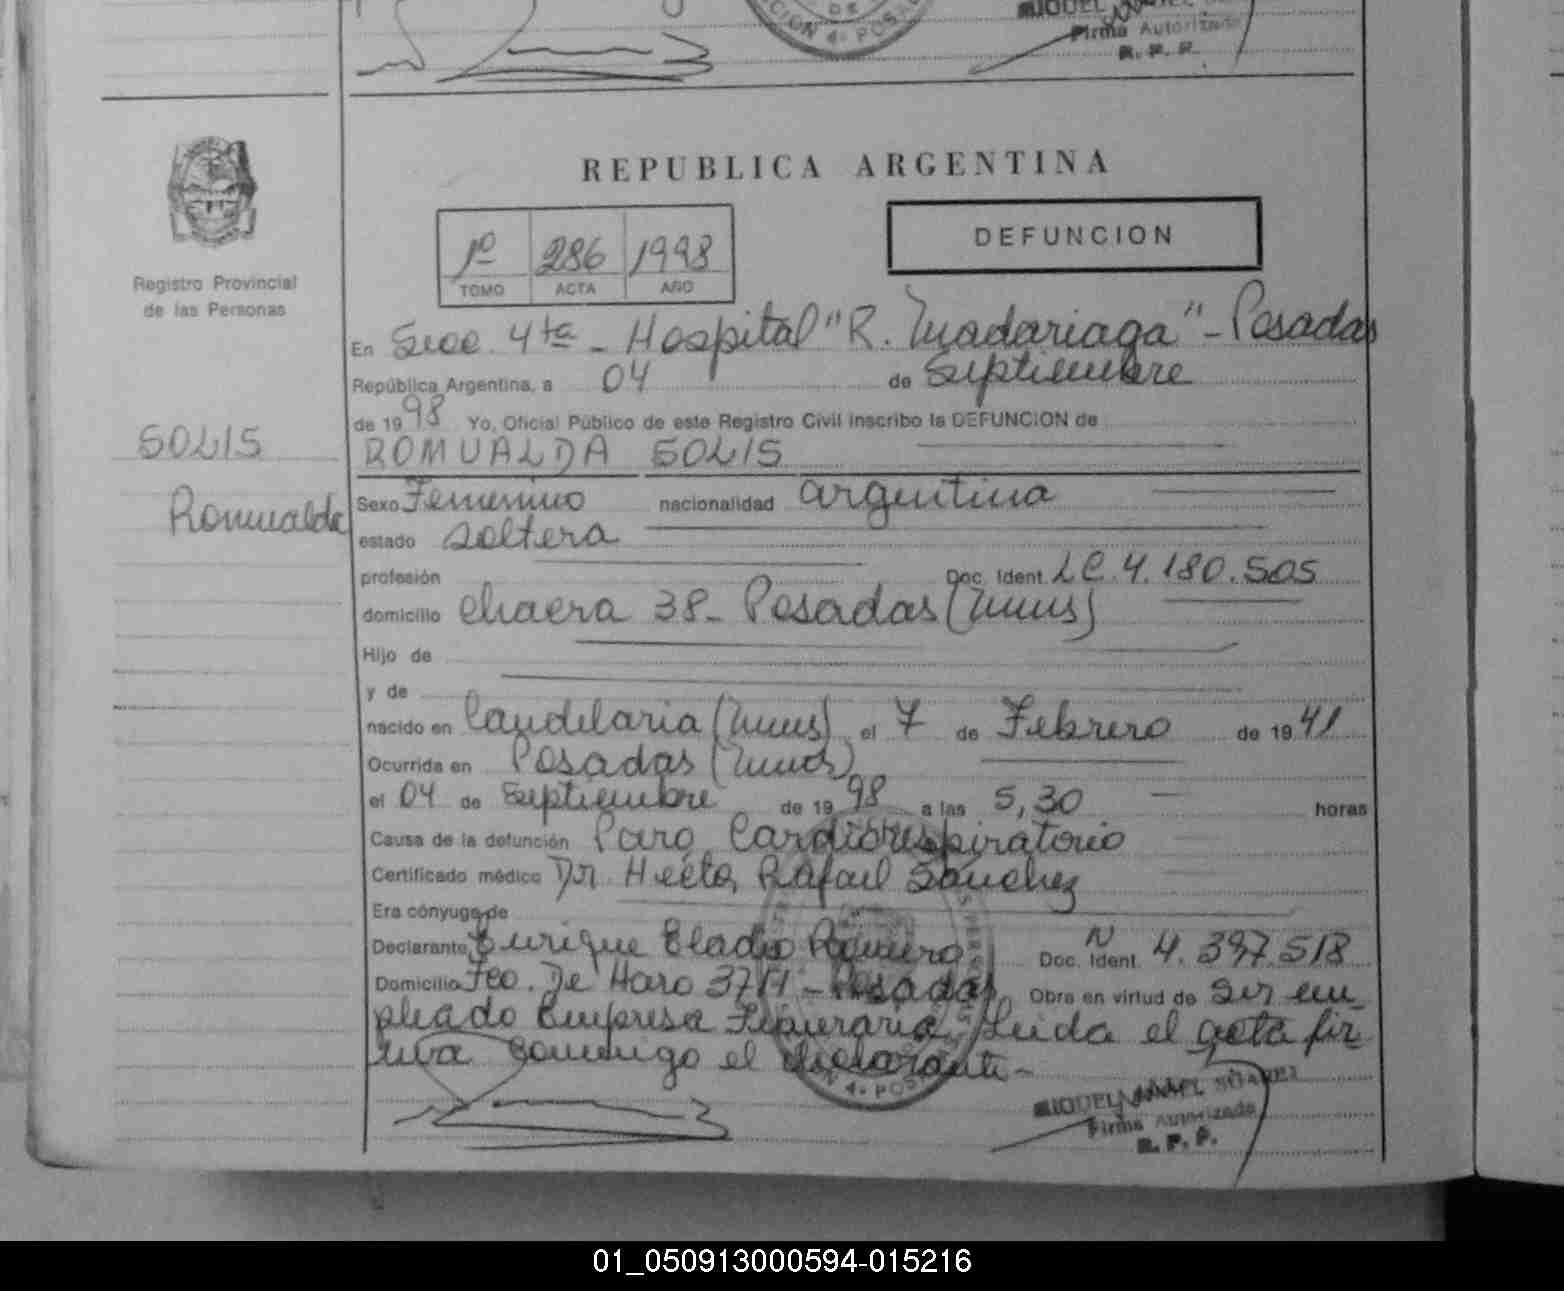 CION 4ª POSADAS
DE
Firma Autorizada
R. P. P.
REPUBLICA ARGENTINA
1º 286 1998
TOMO ACTA AÑO
DEFUNCION
Registro Provincial
de las Personas
En Secc. 4ta - Hospital "R. Madariaga" - Posadas
República Argentina, a 04 de Septiembre
de 1998 Yo, Oficial Público de este Registro Civil inscribo la DEFUNCION de
SOLIS
ROMUALDA SOLIS
Romualda
Sexo Femenino nacionalidad argentina
estado soltera
profesión Doc. Ident. LC. 4.180.505
domicilio chacra 38 - Posadas (Mnes)
Hijo de
y de
nacido en Candelaria (Mnes) el 7 de Febrero de 1941
Ocurrida en Posadas (Mnes)
el 04 de Septiembre de 1998 a las 5,30 horas
Causa de la defunción Paro Cardiorespiratorio
Certificado médico Dr. Hector Rafael Sanchez
Era cónyuge de
Declarante Enrique Eladio Romero Doc. Ident. N 4.397.518
Domicilio Fco. De Haro 3711 - Posadas Obra en virtud de ser em
pleado Empresa Funeraria, Leida el acta fir
ma conmigo el declarante -
N 4ª POS
MIGUEL SUAREZ
Firma Autorizada
R. P. P.
01_050913000594-015216